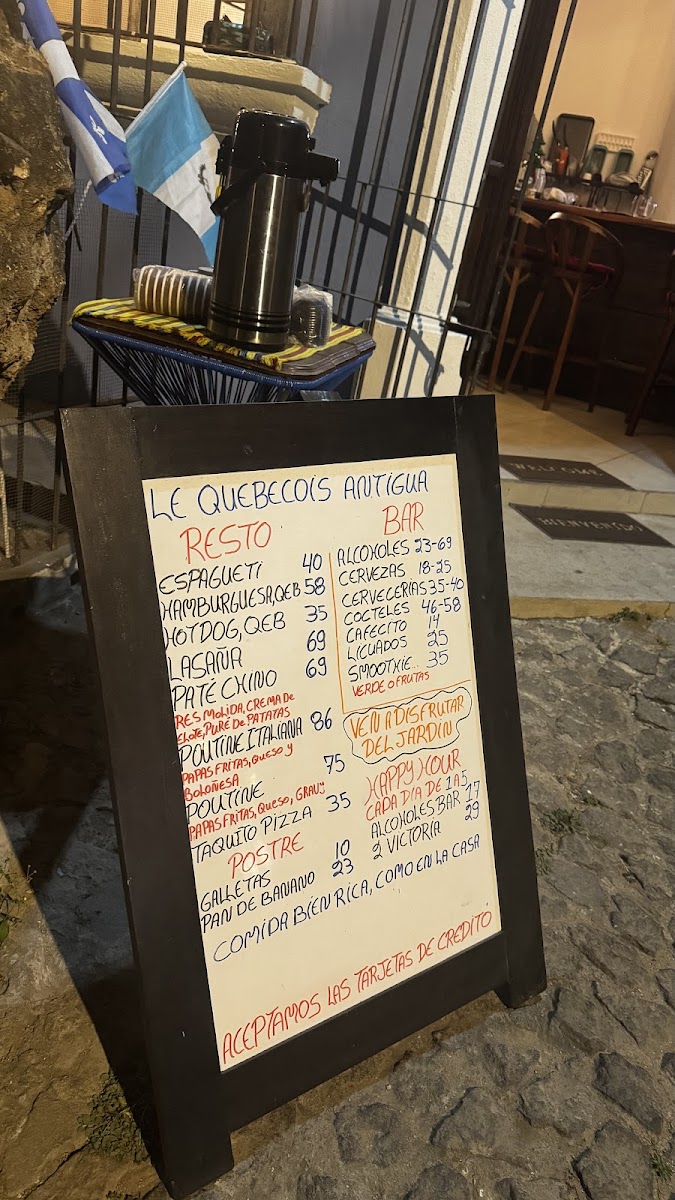 LE QUEBECOIS ANTIGUA
RESTO
ESPAGUETI 40
HAMBURGUESA, QEB 58
HOT DOG, QEB 35
LASAÑA 69
PATÉ CHINO 69
RES MOLIDA, CREMA DE
ELOTE, PURÉ DE PATATAS
POUTINE ITALIANA 86
PAPAS FRITAS, QUESO Y
BOLOÑESA
POUTINE 75
PAPAS FRITAS, QUESO, GRAVY
TAQUITO PIZZA 35
POSTRE
GALLETAS 10
PAN DE BANANO 23
BAR
ALCOHOLES 23-69
CERVEZAS 18-25
CERVECERIAS 35-40
COCTELES 46-58
CAFECITO 14
LICUADOS 25
SMOOTHIE... 35
VERDE O FRUTAS
VEN A DISFRUTAR
DEL JARDIN
HAPPY HOUR
CADA DIA DE 1 A 5
ALCOHOLES BAR 17
2 VICTORIA 29
COMIDA BIEN RICA, COMO EN LA CASA
ACEPTAMOS LAS TARJETAS DE CREDITO
WELCOME
BIENVENIDO